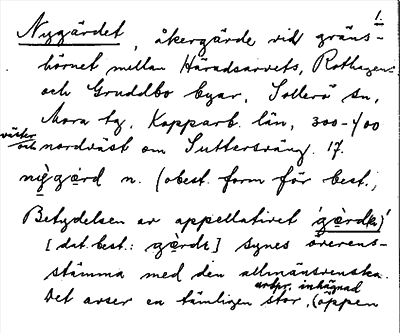 1.
Nygärdet, åkergärde vid gräns-
hörnet mellan Häradsarvets, Rothagens
och Gruddbo byar, Sollerö sn,
Mora tg, Kopparb. län, 300-400
väster och nordväst om Suttersväng. 17.
n. (obest. form för best.;
Betydelsen av appellativet
[dat. best.: ] synes överens-
stämma med den allmänsvenska.
Det avser en tämligen stor, urspr. inhägnad (öppen